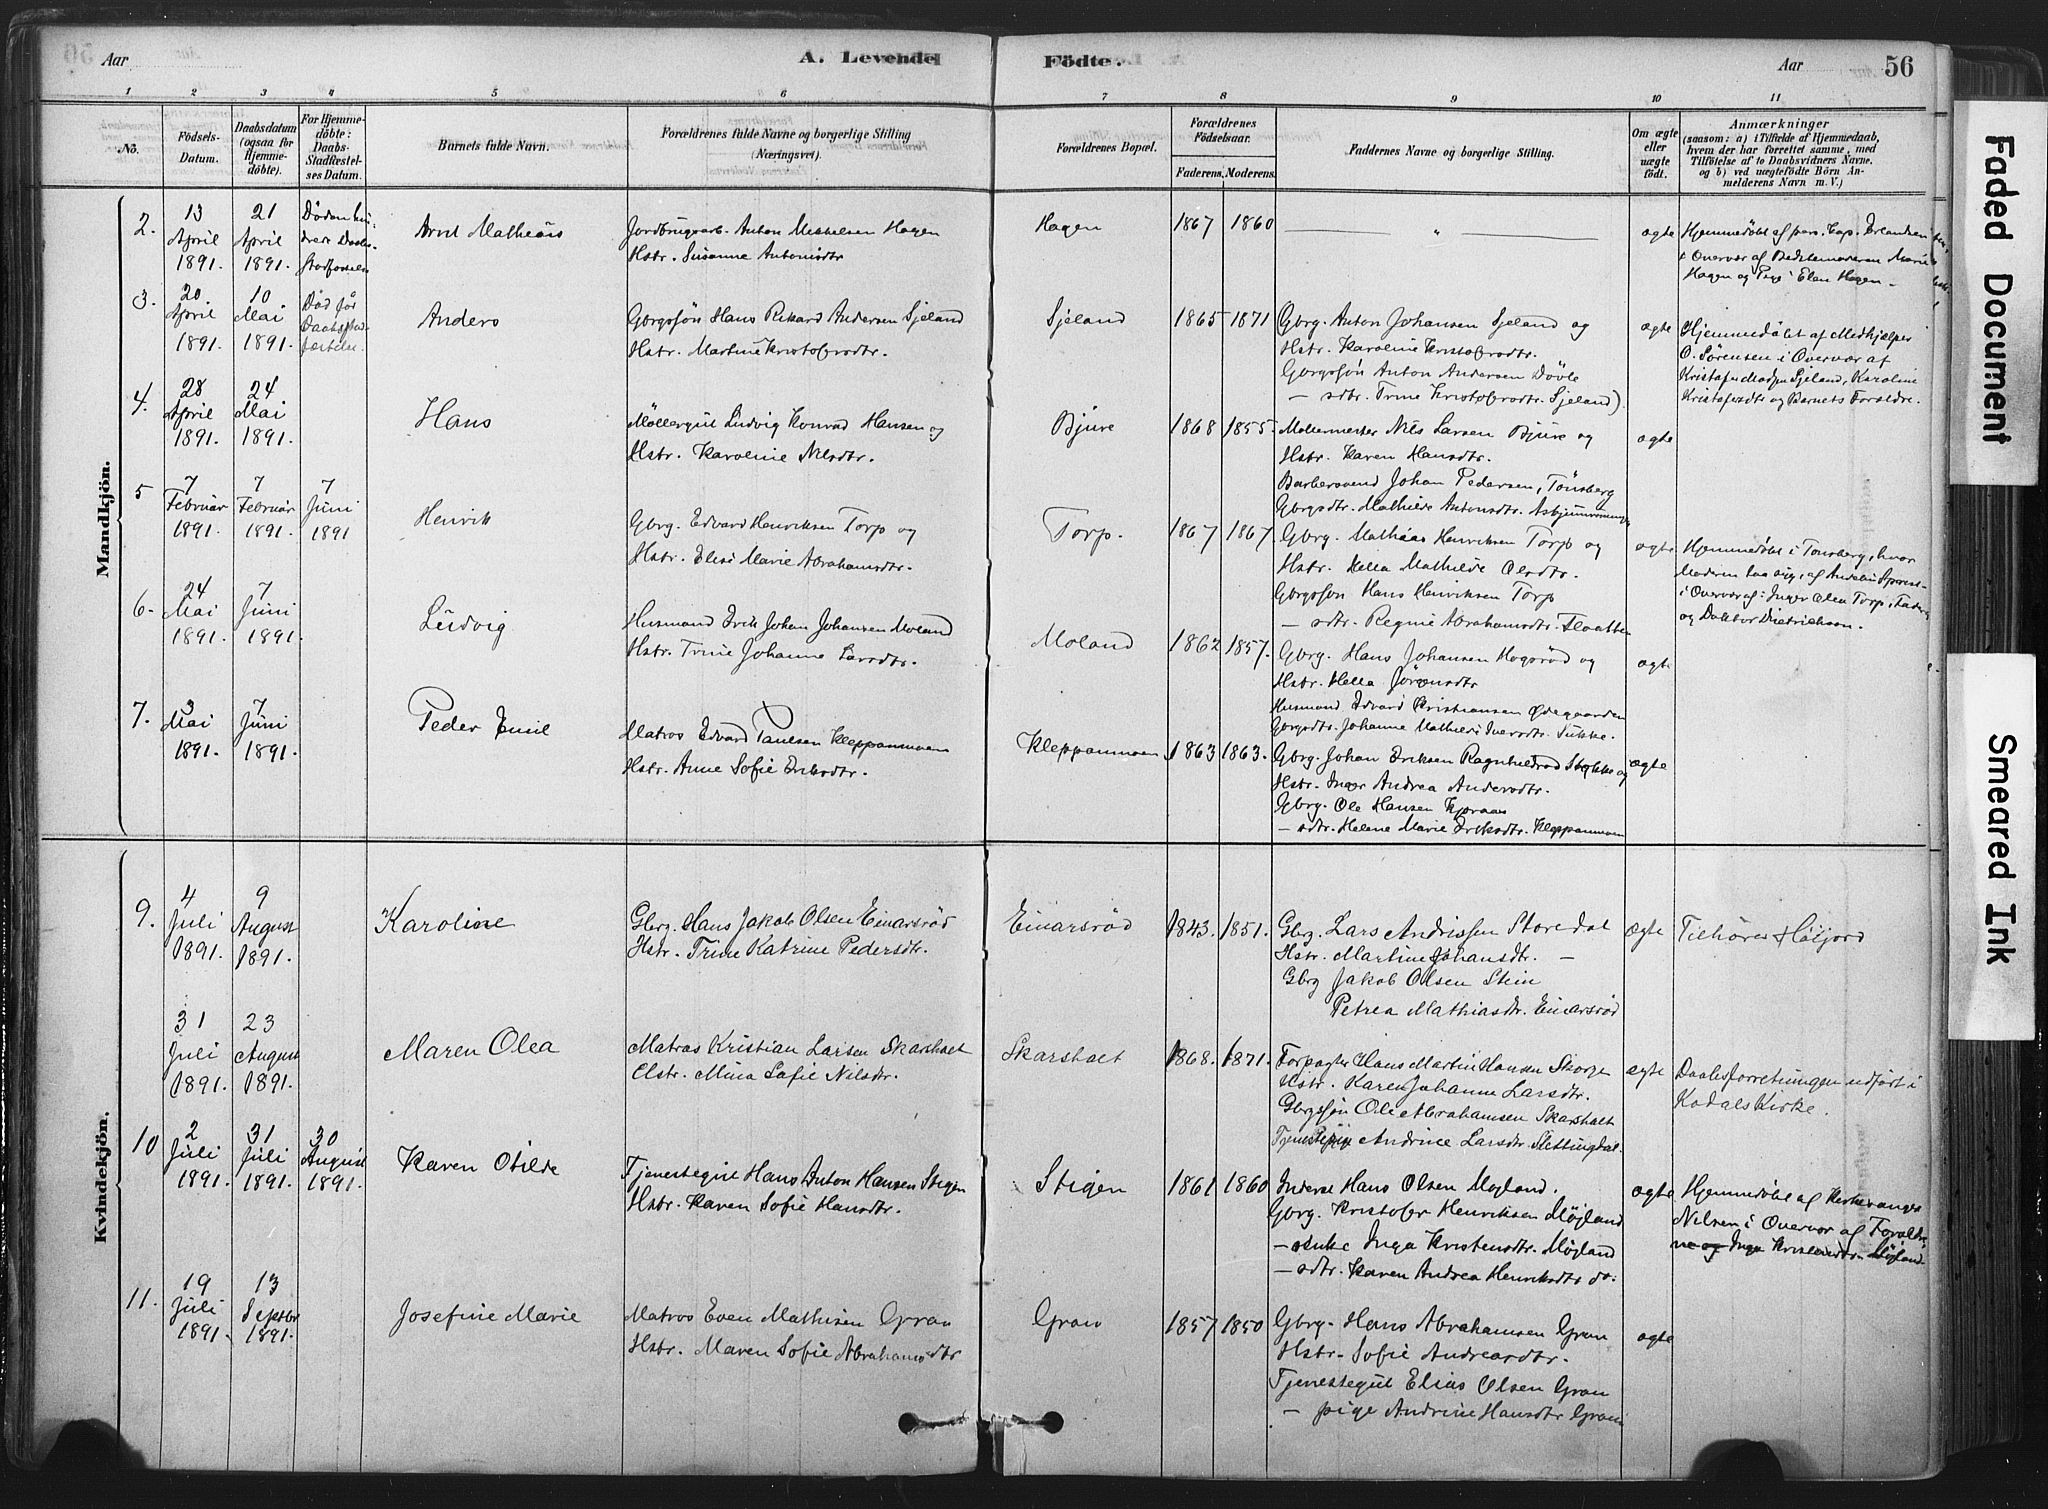 Aar
A. Levende
Födte.
Aar
56
1 2 3 4 5 6 7 8 9 10 11
No.
Födsels-
Datum.
Daabsdatum
(ogsaa for
Hjemme-
döbte).
For Hjemme-
döbte:
Daabs-
Stadfæstel-
ses Datum.
Barnets fulde Navn.
Forældrenes fulde Navne og borgerlige Stilling
(Næringsvei).
Forældrenes Bopæl.
Forældrenes
Födselsaar.
Faderens. Moderens.
Faddernes Navne og borgerlige Stilling.
Om ægte
eller
uægte
födt.
Anmærkninger
(saasom: a) i Tilfælde af Hjemmedaab,
hvem der har forrettet samme, med
Tilföielse af to Daabsvidners Navne,
og b) ved uægtefödte Börn An-
melderens Navn m. V.)
Mandkjön.
2.
13
April
1891.
21
April
1891.
Arnt Mathias
Jordbrugsarb. Anton Mikkelsen Hagen
Hstr. Susanne Antonisdtr
Hagen
1867 1860
ægte
Hjemmedøbt af pers. Cap. Erlandsen
i Overvær af Bedstemoderen Marie
Hagen og Pige Elen Hagen.
3.
20.
April
1891.
10
Mai
1891.
Død før
Daabsstad-
fæstelse.
Anders
Gbrgssøn Hans Rikard Andersen Sjeland
Hstr. Martine Kristofersdtr.
Sjeland
1865 1871
Gbrg. Anton Johansen Sjeland og
Hstr. Karoline Kristofersdtr.
Gbrgssøn Anton Andersen Døvle
— sdtr. Trine Kristofersdtr. Sjeland)
ægte
Hjemmedøbt af Medhjælper
O. Sørensen i Overvær af
Sjeland, Karoline
Kristofersdtr og Barnets Forældre.
4.
28
April
1891.
24
Mai
1891.
Hans
Møllergut Ludvig Konrad Hansen og
Hstr. Karoline Nilsdtr.
Bjüre
1868 1855.
Møllermester Nils Larsen Bjüre og
Hstr. Karen Hansdtr.
Barbersvend Johan Pedersen, Tönsberg
Gbrgsdtr. Mathilde Antonsdtr.
ægte
5
7
Februar
1891.
7
Februar
1891.
7
Juni
1891
Henrik
Gbrg. Edvard Henriksen Torp og
Hstr. Elise Marie Abrahamsdtr.
Torp.
1867 1867
Gbrg. Mathias Henriksen Torp og
Hstr. Hella Mathilde Olsdtr.
Gbrgssøn Hans Henriksen Torp
— sdtr. Regine Abrahamsdtr. Flaatten
ægte
Hjemmedøbt i Tønsberg, hvor
Moderen laa syg, af
i Overvær af: Inger Olea Torp, Faderen
og Doktor Dietrichson.
6.
24
Mai
1891.
7
Juni
1891.
Ludvig
Husmand Erik Johan Johansen Moland
Hstr. Trine Johanne Larsdtr.
Moland
1862 1857.
Gbrg. Hans Johansen Hogsrød og
Hstr. Hella Jørensdtr
Husmand Edvard Kristiansen Ødegaarden
Gbrgsdtr. Johanne Mathilde Iversdtr. Tukke.
ægte
7.
3
Mai
1891.
7
Juni
1891.
Peder Emil
Matros Edvard Paulsen Kleppanmoen
Hstr. Anne Sofie Eriksdtr.
Kleppanmoen
1863 1863.
Gbrg. Johan Eriksen Ragnhildrød Stokke og
Hstr. Inger Andrea Andersdtr.
Gbrg. Ole Hansen Kjøraas
— sdtr. Helene Marie Eriksdtr. Kleppanmoen
ægte
Kvindekjön.
9.
4
Juli
1891.
9
August
1891.
Karoline
Gbrg. Hans Jakob Olsen Einarsrød
Hstr. Trine Katrine Pedersdtr.
Einarsrød
1843. 1851.
Gbrg. Lars Andrissen Storedal
Hstr. Martine Johansdtr. —
Gbrg Jakob Olsen Stein
Petrea Mathiasdtr. Einarsrød
ægte
Tilhører Høijord
31
Juli
1891.
23
August
1891.
Maren Olea
Matros Kristian Larsen Skarsholt
Hstr. Mina Sofie Nilsdtr.
Skarsholt
1868. 1871.
Forpagter Hans Martin Hansen Skorge
Hstr. Karen Johanne Larsdtr.
Gbrgssøn Ole Abrahamsen Skarsholt
Tjenestepige Andrine Larsdtr. Slettingdal.
ægte
Daabsforretningen udført i
Kodals Kirke.
10
2
Juli
1891.
31
Juli
1891.
30
August
1891.
Karen Otilde
Tjenestegut Hans Anton Hansen Stigen
Hstr. Karen Sofie Hansdtr.
Stigen
1861 1860
Inderst Hans Olsen Møjland.
Gbrg. Kristofer Henriksen Møjland
— enke Inga Kristensdtr. Møjland
— sdtr. Karen Andrea Henriksdtr do.
ægte
Hjemmedøbt af Kirkesanger
Nilsen i Overvær af Forældre
ne og Inga Kristensdtr. Møjland
11.
19
Juli
1891.
13
Septbr
1891.
Josefine Marie
Matros Even Mathisen Gran
Hstr. Maren Sofie Abrahamsdtr
Gran
1857 1850
Gbrg. Hans Abrahamsen Gran
Hstr. Sofie Andreasdtr.
Tjenestegut Elias Olsen Gran
— pige Andrine Hansdtr Gran
ægte
Faded Document
Smeared Ink